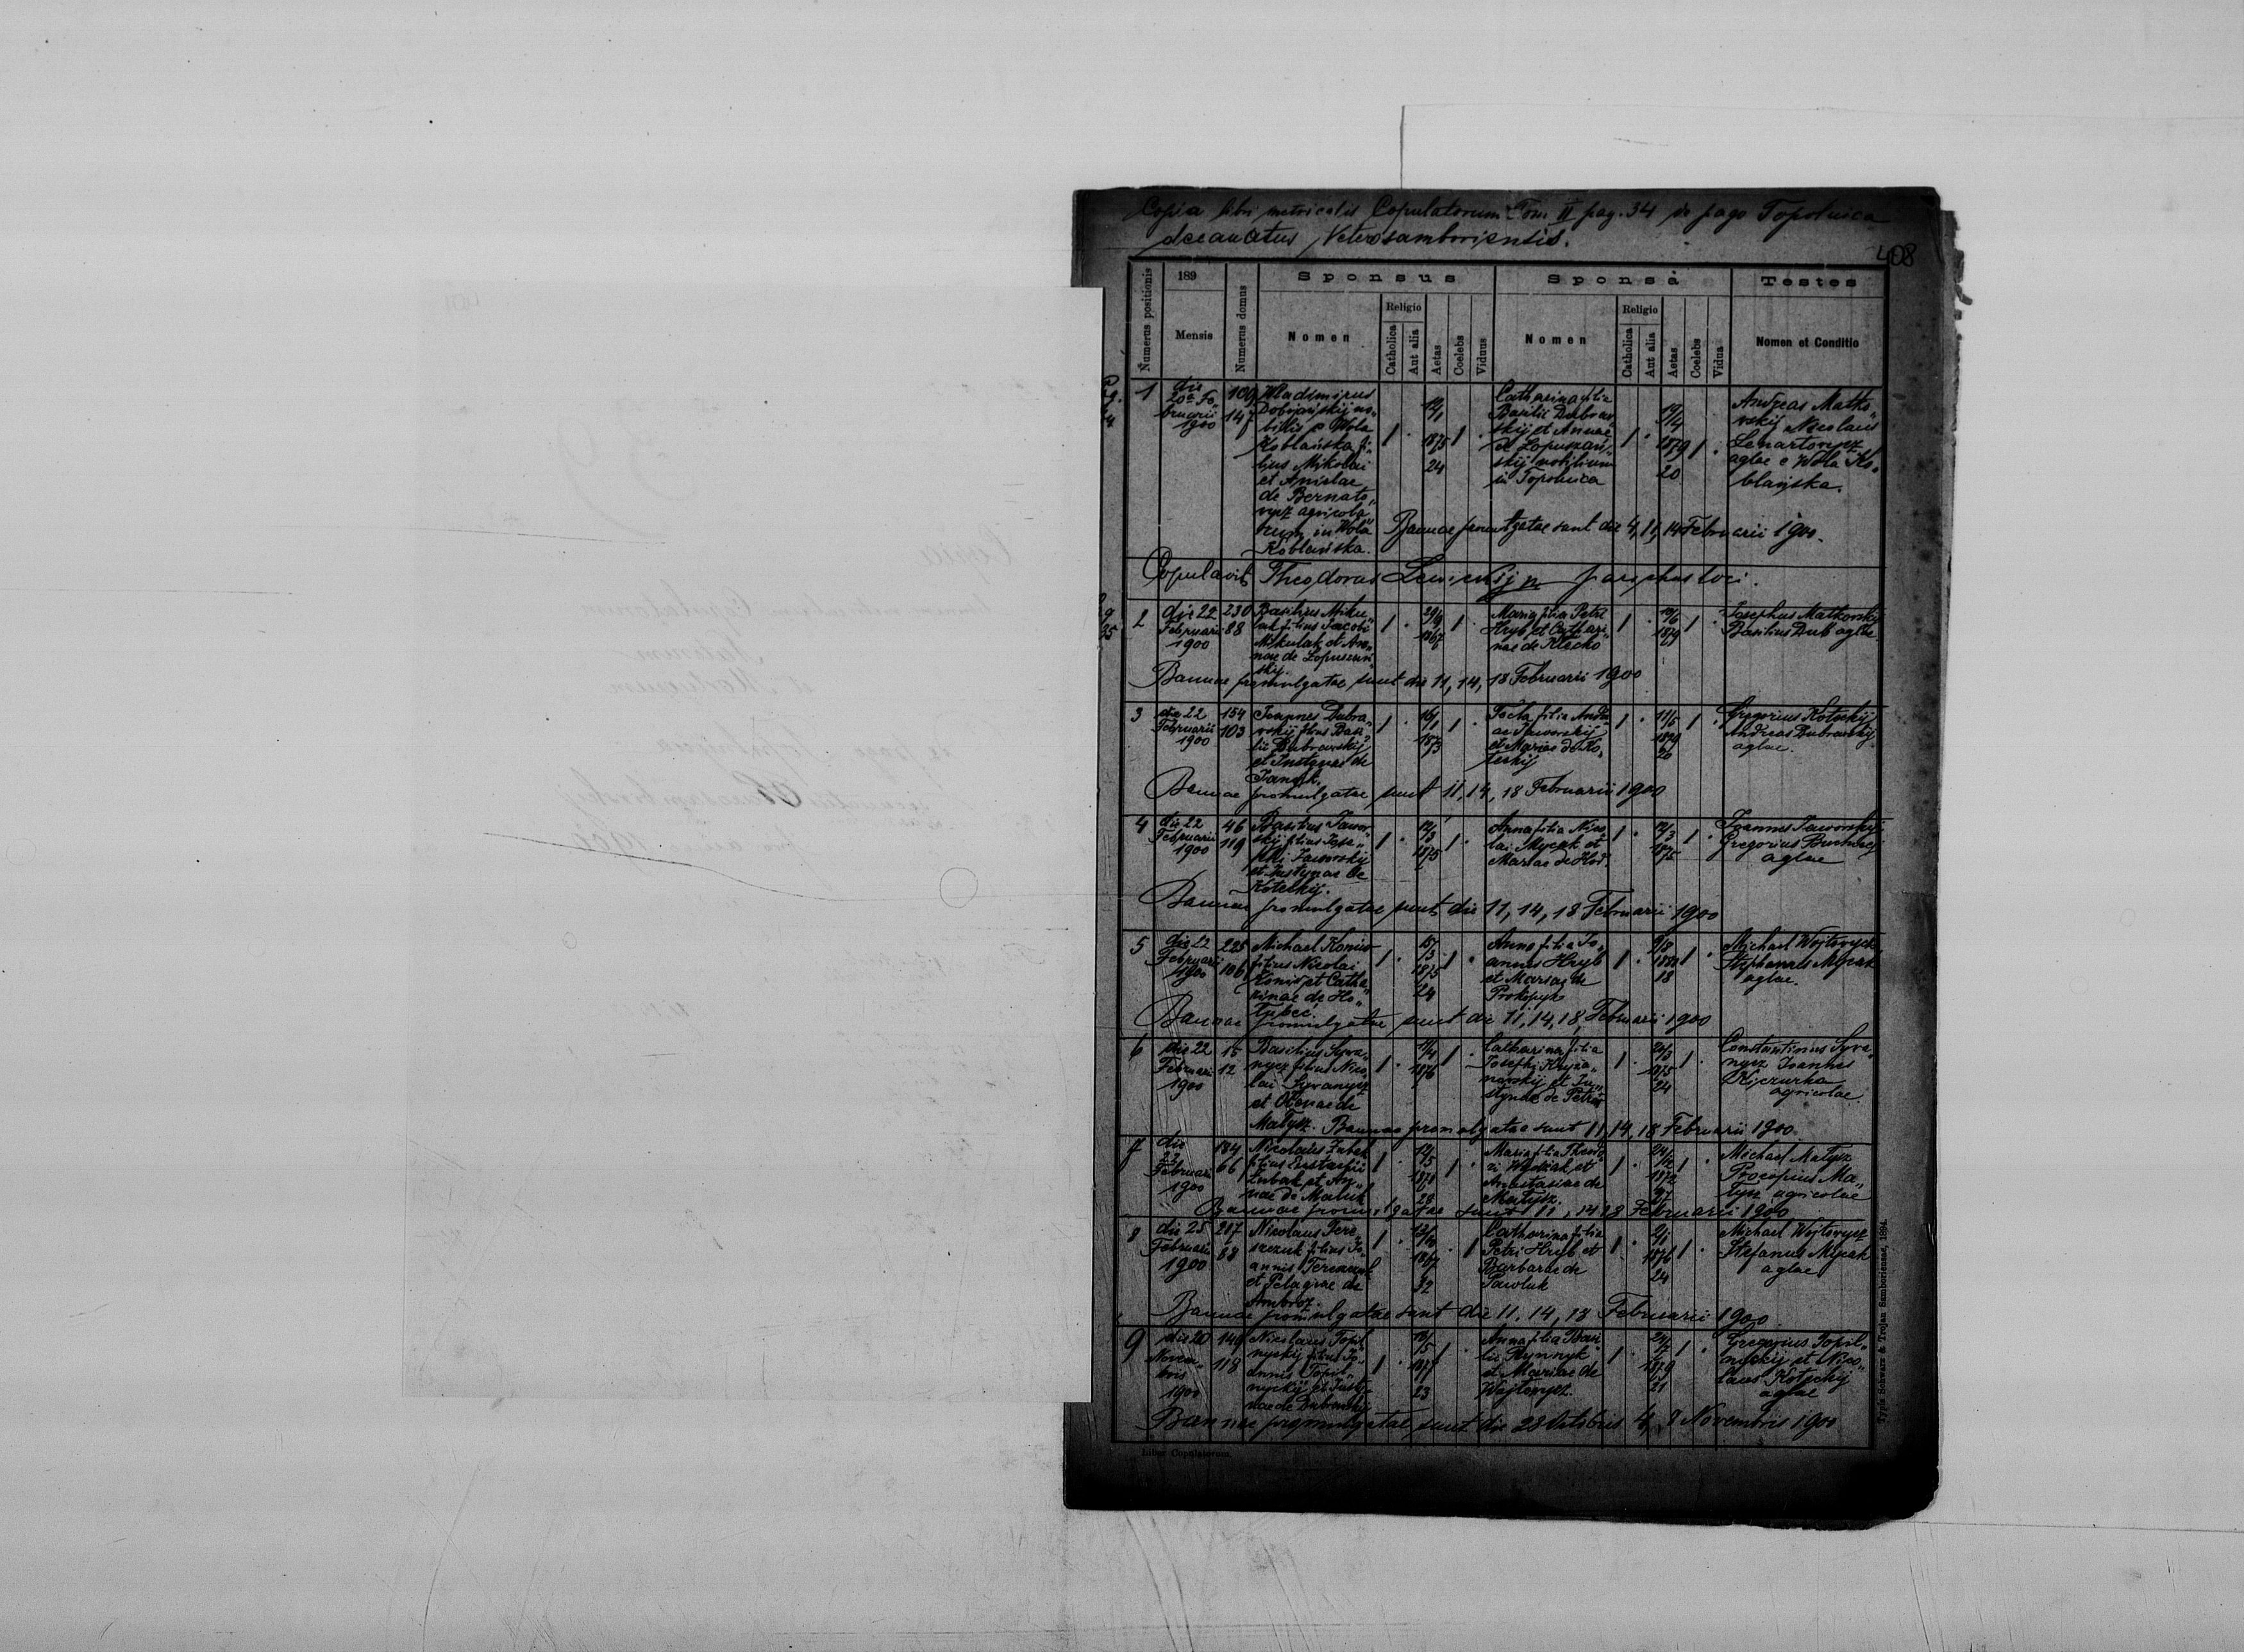 Copia libri metricalis Copulatorum Tom. II pag. 34 de pago Topolnica
decanatus Veterosamboriensis.
408
Numerus positionis
189
Mensis
Numerus domus
Sponsus
Nomen
Religio
Catholica
Aut alia
Aetas
Coelebs
Viduus
Sponsa
Nomen
Religio
Catholica
Aut alia
Aetas
Coelebs
Vidua
Testes
Nomen et Conditio
1
die
20a Fe„
bruarii
1900
109
147
Wladimirus
Dobrjańskij no„
bilis e Wola
Koblańska fi„
lius Mikolai
et Anislae
de Bernato„
vycz agricola„
rum in Wola
Koblańska.
1875
24
Catharina filia
Basilii Dubraw„
skij et Annae
de Łopuszań„
skij nobilium
in Topolnica
19/4
1879
20
Andreas Matko„
vskij Nicolaus
Lenartovycz
aglae e Wola Ko„
blańska.
Bannae promulgatae sunt die 4, 11, 14 Februarii 1900.
Copulavit Theodorus parochus loci.
2
die 22
Februarii
1900
230
88
Basilius Miku„
lak filius Jacobi
Mikulak et An„
nae de Łopuszań„
skij.
29/9
1867
Maria filia Petri
Hryb et Cathari„
nae de Klecho
19/6
1879
Josephus Matkovskij
Basilius Dub aglae.
Bannae promulgatae sunt die 11, 14, 18 Februarii 1900
3
die 22
Februarii
1900
154
103
Joannes Dubra„
wskij filius Basi„
lii Dubrawskij
et Justynae de
16/1
1873
filia Andre
ae Jaworskij
et Mariae de Ko„
teckij
11/5
1879
20
Gregorius Koteckij
Andreas Dubrawskij
aglae.
Bannae promulgatae sunt 11, 14, 18 Februarii 1900
4
die 22
Februarii
1900
46
119
Basilius Jawor„
skij filius Jose„
phi Jaworskij
et Justynae de
Koteckij.
12/3
1875
Anna filia Nico„
lai Mycak et
Mariae de
12/3
1875
Joannes Jaworskij
Gregorius
aglae
Bannae promulgatae sunt die 11, 14, 18 Februarii 1900
5
die 22
Februarii
1900
225
106
Michael Konio
filius Nicolai
Konio et Catha„
rinae de Ho„
łubec.
15/3
1875
24
Anna filia Jo„
annis Hryb
et Mariae de
Prokopyk
9/8
1881
18
Michael Wojtovycz
Stephanus Mycak
aglae.
Bannae promulgatae sunt die 11, 14, 18 Februarii 1900
6
die 22
Februarii
1900
15
12
Basilius Syva„
nycz filius Nico„
lai Syvanycz
et Olenae de
Matysz.
11/4
1876
Catharina filia
Josephi Kryża„
novskij et Ju„
stynae de Petriv
24/3
1875
24
Constantinus Syva„
nycz Joannes
Kiczurka
agricolae.
Bannae promulgatae sunt 11, 14, 18 Februarii 1900.
7
die
22
Februarii
1900
184
66
Nicolaus Zubak
filius Eustachii
Zubak et An„
nae de Matuk
12/5
1871
28
Maria filia Theodo
ri et
Anastasiae de
Matysz.
24/12
1872
27
Michael Matysz
Procopius Ma„
tysz agricolae
Bannae promulgatae sunt 11, 14, 18 Februarii 1900
8
die 25
Februarii
1900
217
88
Nicolaus Tere„
szczuk filius Jo„
annis Tereszczuk
et Pelagiae de
Ambroz.
13/10
1867
32
Catharina filia
Petri Hryb et
Barbarae de
Pawluk
1876
24
Michael Wojtovycz
Stefanus Mycak
aglae
Bannae promulgatae sunt die 11, 14, 18 Februarii 1900
9
die 20
Novem„
bris
1900
149
118
Nicolaus Topil„
nyckij filius Jo„
annis Topil„
nyckij et Justy„
nae de Dubrawskij
18/5
1877
23
Anna filia Basi„
lii Rynnyk
et Mariae de
Wojtovycz.
24/7
1879
21
Gregorius Topil„
nyckij et Nico„
laus Koteckij
aglae
Bannae promulgatae sunt die 28 Octobris 4, 8 Novembris 1900
Liber Copulatorum.
Typis Schwarz & Trojan Samboriensae, 1894.